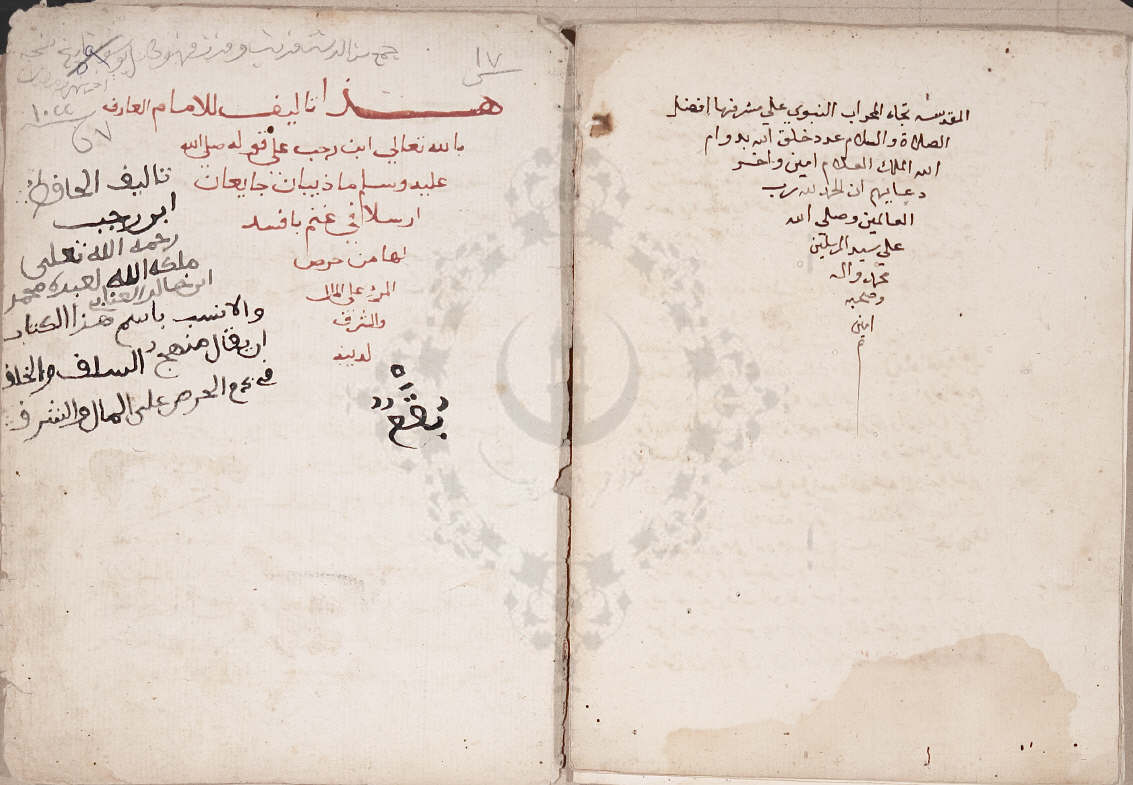 المقدسه تجاه المحراب النبوي علي مشرفها افضل
الصلاة والسلام عدد خلق الله بدوام
الله الملك العلام امين واخر
دعايهم ان الحمد لله رب
العالمين وصلى الله
علي سيد المرسلين
محمد واله
وصحبه
امين
م
١٧
هذا تاليف للامام العارف
بالله تعالي ابن رجب علي قوله صلي الله
عليه وسلم ما ذيبان جايعان
ارسلا في غنم بافسد
لها من حرص
المرء علي المال
والشرف
لدينه
تاليف الحافظ
ابن رجب
رحمه الله تعلى
ملكه الله لعبده محمد
والانسب باسم هذا الكتاب
ان يقال منهج السلف والخلف
في الحرص على المال والشرف